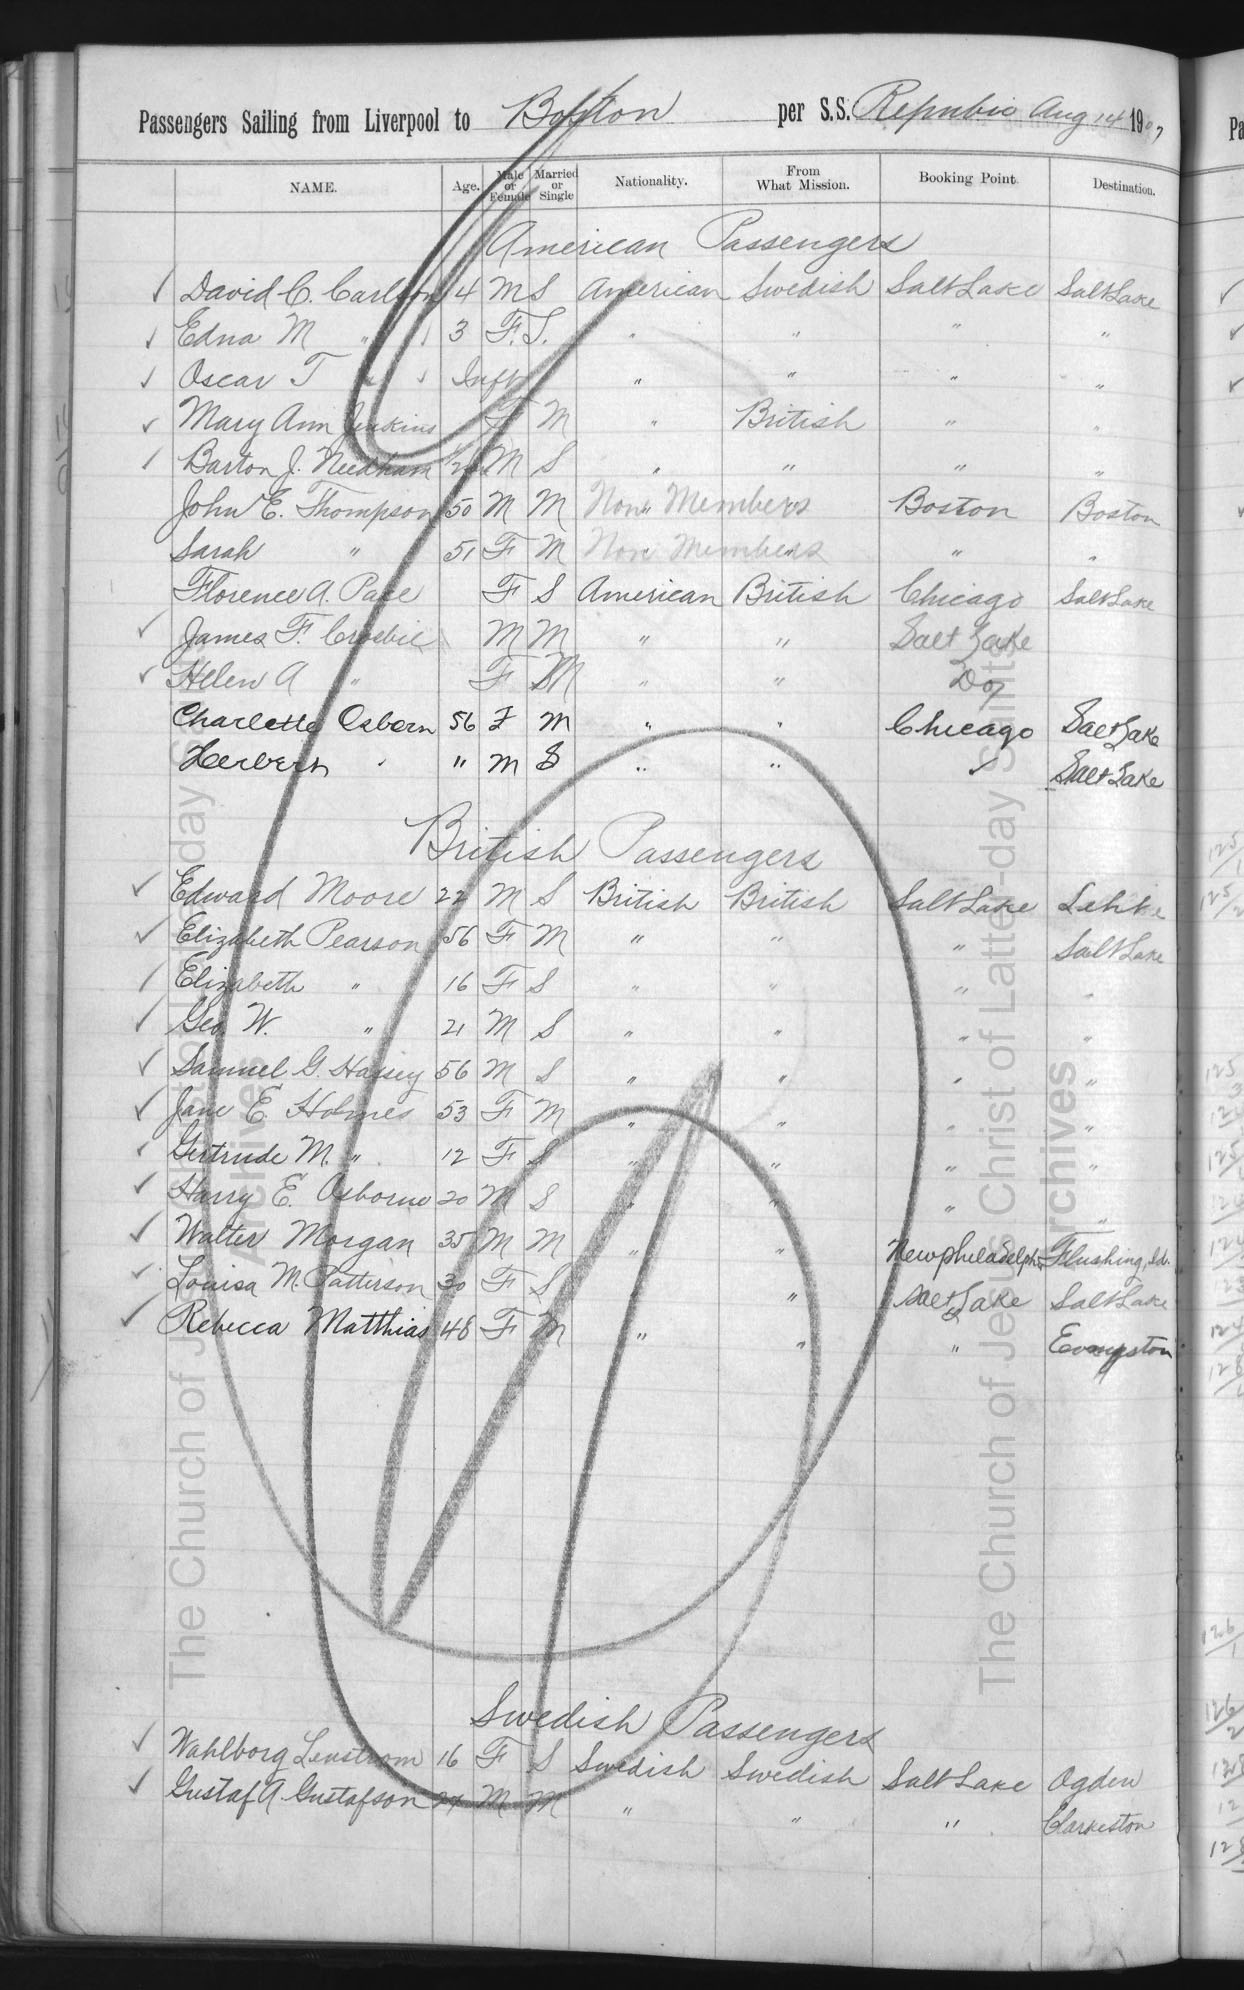 Passengers Sailing from Liverpool to Boston per S.S. Republic Aug 14 1907
NAME. Age. Male or Female Married or Single Nationality. From What Mission. Booking Point. Destination.
American Passengers
✓ David C. Carlson 4 M S American Swedish Salt Lake Salt Lake
✓ Edna M " " 3 F. S. " " " "
✓ Oscar T " " Inft " " " "
✓ Mary Ann Jenkins F M " British " "
✓ Barton J. Needham M S " " " "
John E. Thompson 50 M M Non " Members " Boston Boston
Sarah " 51 F M Non " Members " " "
Florence A. Pace F S American British Chicago Salt Lake
✓ James F. Crosbie M M " " Salt Lake
✓ Helen A " F M " " Do
Charlotte Osborn 56 F M " " Chicago Salt Lake
Herbert " " M S " " " Salt Lake
British Passengers
✓ Edward Moore 22 M S British British Salt Lake Lehi
✓ Elizabeth Pearson 56 F M " " " Salt Lake
✓ Elizabeth " 16 F S " " " "
✓ Geo. W. " 21 M S " " " "
✓ Samuel G. 56 M S " " " "
✓ Jane E. Holmes 53 F M " " " "
✓ Gertrude M. " 12 F S " " " "
✓ Harry E. Osborne 20 M S " " " "
✓ Walter Morgan 35 M M " " New Philadelphia Flushing,
✓ Louisa M. Patterson 30 F S " " Salt Lake Salt Lake
✓ Rebecca Matthias 48 F M " " " Evanston
Swedish Passengers
✓ Wahlborg Lenstrom 16 F S Swedish Swedish Salt Lake Ogden
✓ Gustaf A. Gustafson 27 M M " " " Clarkston
The Church of Jesus Christ of Latter-day Saints
Archives
The Church of Jesus Christ of Latter-day Saints
Archives